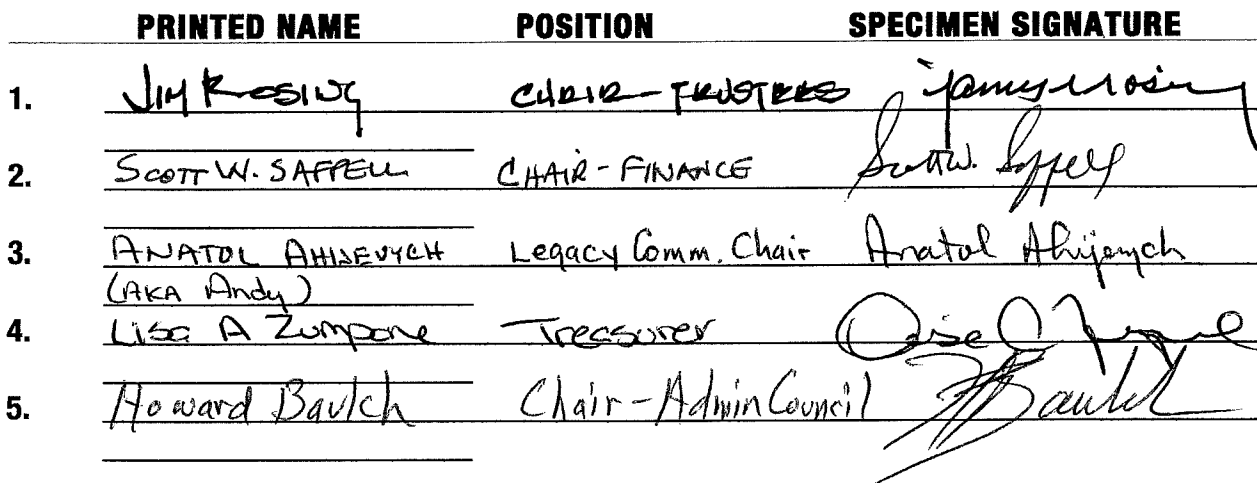 PRINTED NAME POSITION SPECIMEN SIGNATURE
1. JIM ROSING CHAIR-TRUSTEES
2. SCOTT W. SAFFELL CHAIR-FINANCE Scott W. Saffell
3. ANATOL AHIJEVYCH Legacy Comm. Chair Anatol Ahijevych
(AKA Andy)
4. Lisa A Zumpone Treasurer
5. Howard Baulch Chair-Admin Council